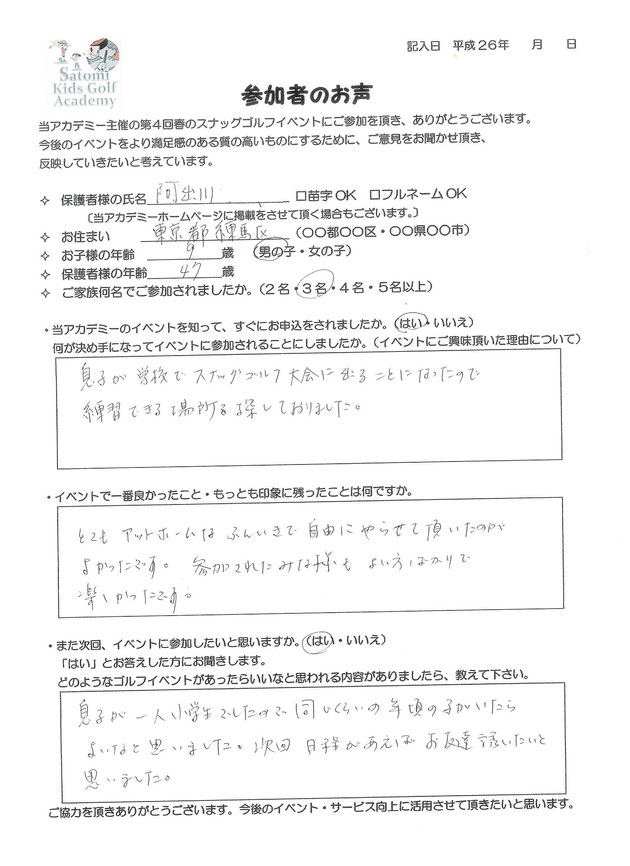 Satomi
Kids Golf
Academy
記入日 平成26年 月 日
参加者のお声
当アカデミー主催の第4回春のスナッグゴルフイベントにご参加を頂き、ありがとうございます。
今後のイベントをより満足感のある質の高いものにするために、ご意見をお聞かせ頂き、
反映していきたいと考えています。
✧ 保護者様の氏名 阿出川 □苗字OK □フルネームOK
〔当アカデミーホームページに掲載をさせて頂く場合もございます。〕
✧ お住まい 東京都練馬区 (〇〇都〇〇区・〇〇県〇〇市)
✧ お子様の年齢 9 歳 (男の子・女の子)
✧ 保護者様の年齢 47 歳
✧ ご家族何名でご参加されましたか。(2名・3名・4名・5名以上)
・当アカデミーのイベントを知って、すぐにお申込をされましたか。(はい・いいえ)
何が決め手になってイベントに参加されることにしましたか。(イベントにご興味頂いた理由について)
息子が学校でスナッグゴルフ大会に出ることになったので
練習できる場所を探しておりました。
・イベントで一番良かったこと・もっとも印象に残ったことは何ですか。
とても アットホームな ふんいきで 自由に やらせて 頂いたのが
よかったです。 参加されたみな様も よい方ばかりで
楽しかったです。
・また次回、イベントに参加したいと思いますか。(はい・いいえ)
「はい」とお答えした方にお聞きします。
どのようなゴルフイベントがあったらいいなと思われる内容がありましたら、教えて下さい。
息子が 一人 小学生でしたので 同じくらいの 年頃の子がいたら
よいなと思いました。次回 日程があえば お友達誘いたいと
思いました。
ご協力を頂きありがとうございます。今後のイベント・サービス向上に活用させて頂きたいと思います。